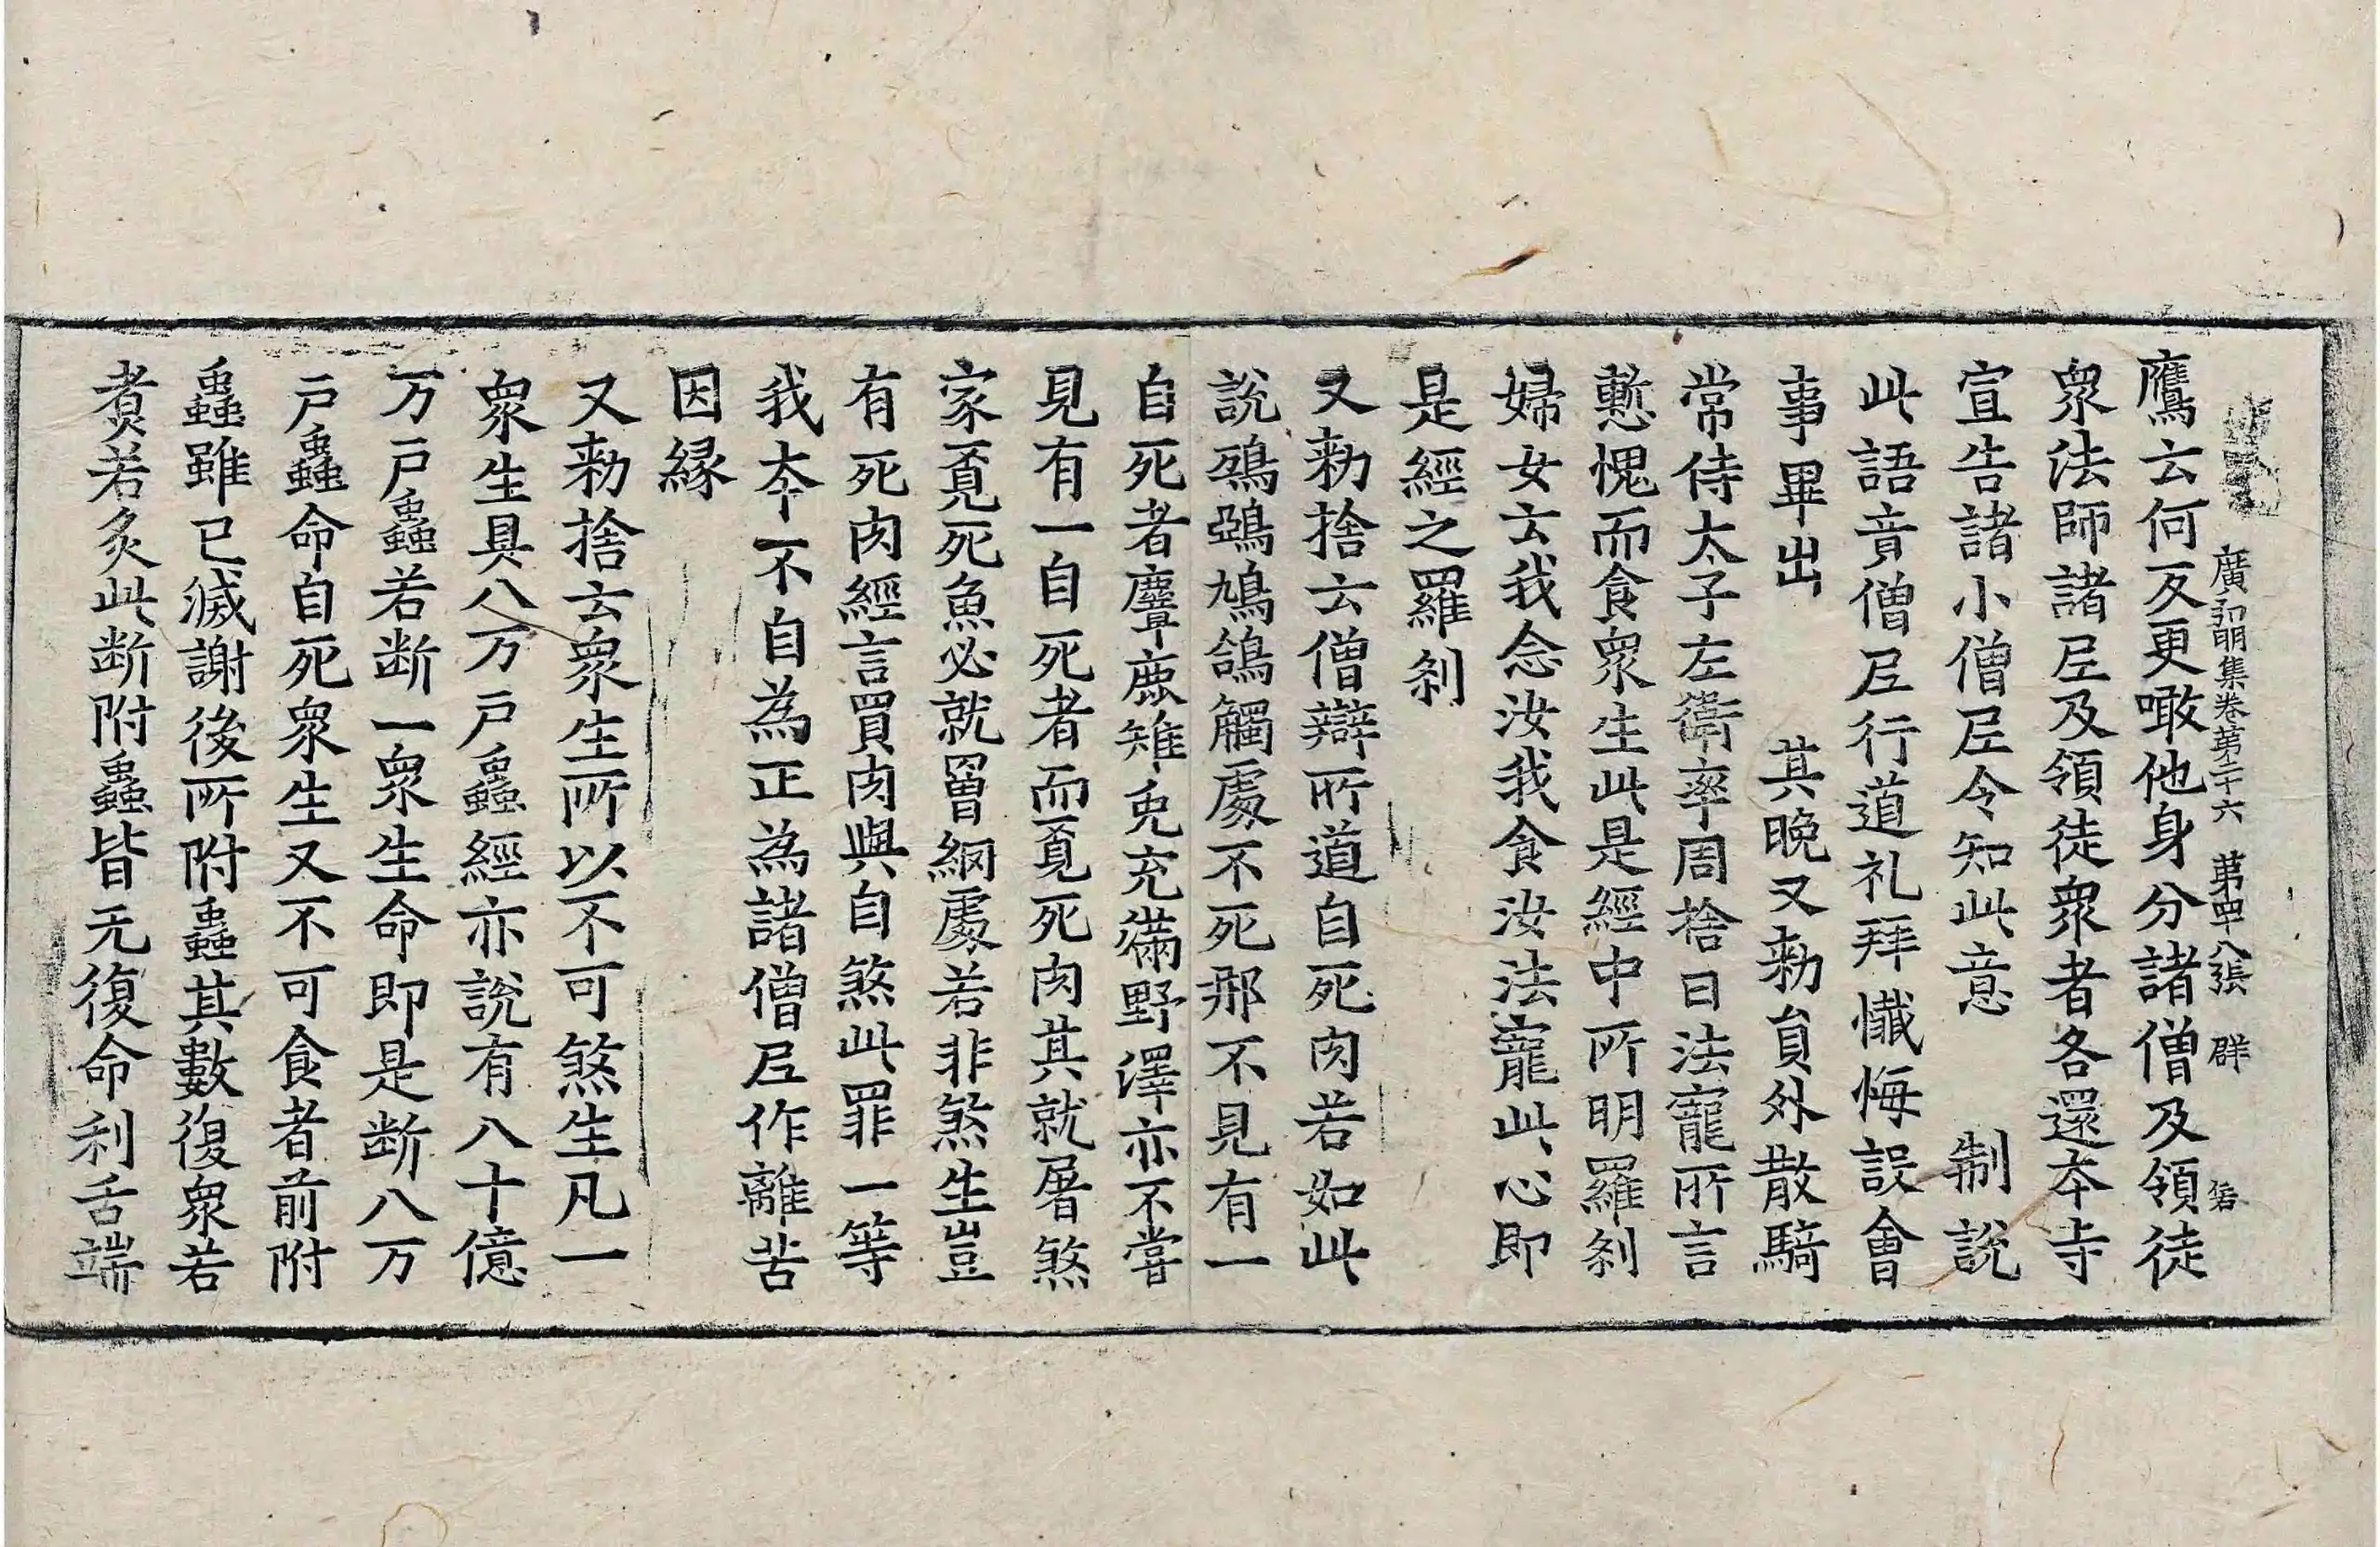 廣弘明集卷第二十六 第四十八張 群
鷹云何反更噉他身分諸僧及領徒
衆法師諸尼及領徒衆者各還本寺
宣告諸小僧尼令知此意 制說
此語音僧尼行道礼拜懺悔設會
事畢出 其晚又勑貟外散騎
常侍太子左衛率周捨曰法寵所言
慙愧而食衆生此是經中所明羅剎
婦女云我念汝我食汝法寵此心即
是經之羅剎
又勑捨云僧辯所道自死肉若如此
說鵄鵶鳩鴿觸處不死那不見有一
自死者麞鹿雉兔充滿野澤亦不嘗
見有一自死者而覓死肉其就屠煞
家覓死魚必就罾網處若非煞生豈
有死肉經言買肉與自煞此罪一等
我本不自為正為諸僧尼作離苦
因縁
又勑捨云衆生所以不可煞生凡一
衆生具八万戸蟲經亦說有八十億
万戸蟲若断一衆生命即是断八万
戸蟲命自死衆生又不可食者前附
蟲雖已滅謝後所附蟲其數復衆若
煑若炙此断附蟲皆无復命利舌端